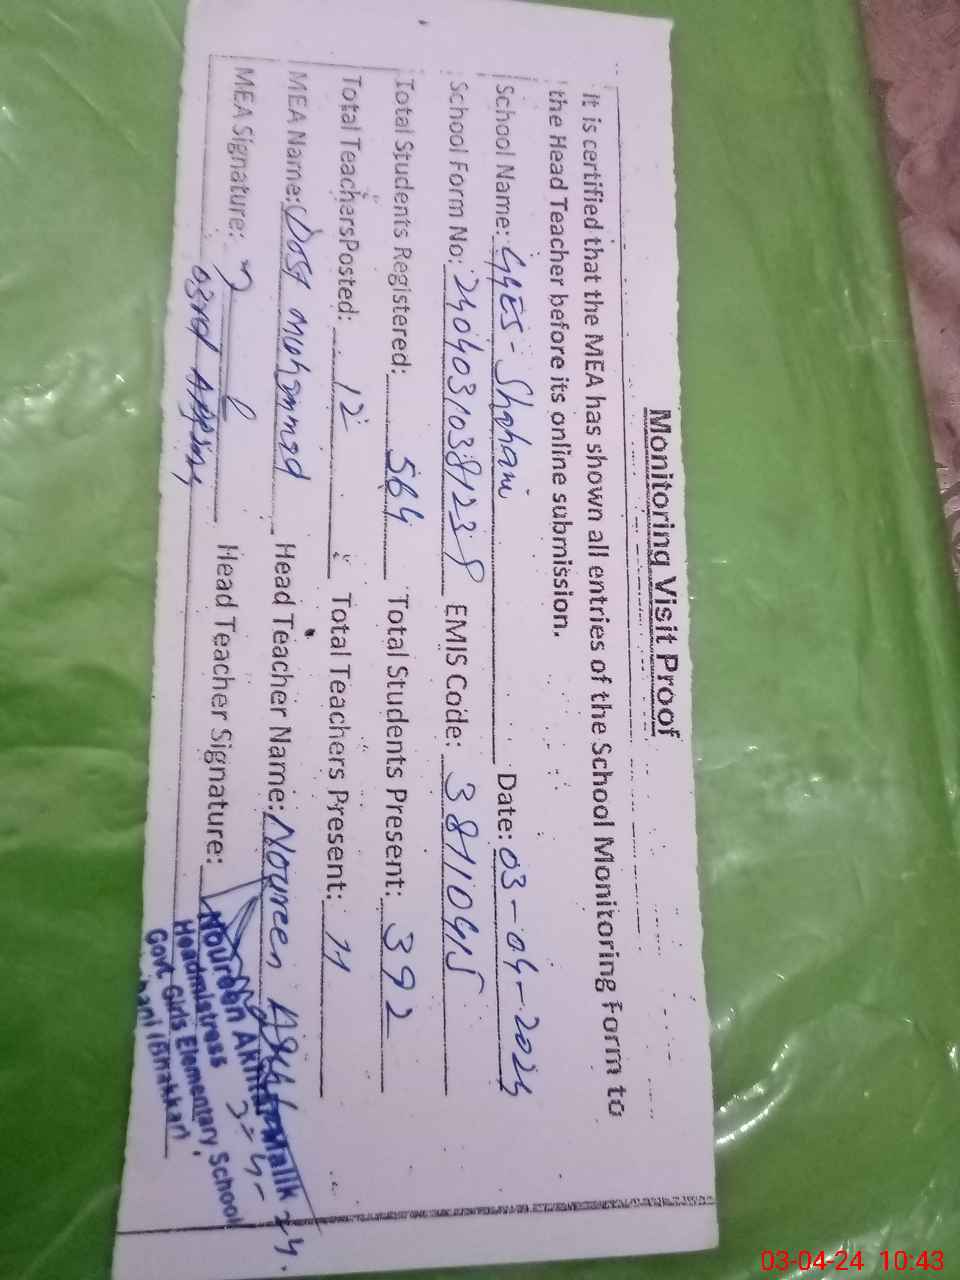 Monitoring Visit Proof
It is certified that the MEA has shown all entries of the School Monitoring Form to
the Head Teacher before its online submission.
School Name: GGES - Shahani Date: 03-04-2024
School Form No: 2404031038123 EMIS Code: 38110415
Total Students Registered: 564 Total Students Present: 392
Total Teachers Posted: 12 Total Teachers Present: 11
MEA Name: Dost Muhammad Head Teacher Name: Noureen Akhtar
MEA Signature: Head Teacher Signature:
Noureen Akhtar Malik
Headmistress
Govt. Girls Elementary School
hani (Bhakkar)
3-4-24
03-04-24 10:43